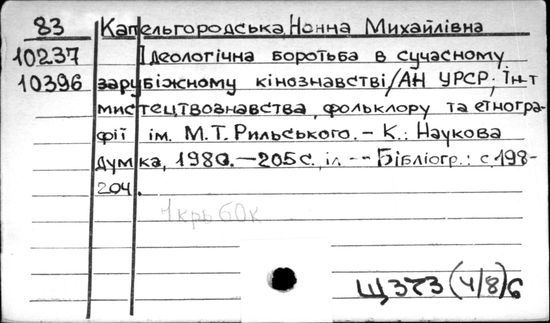 83 Капельгородська Нонна Михайлівна
10237 Ідеологічна боротьба в сучасному
10396 зарубіжному кінознавстві/АН УРСР; Ін-т
мистецтвознавства, фольклору та етногра-
фії ім. М.Т. Рильського. – К.: Наукова
думка, 1980. – 205 с., іл. -- Бібліогр.: с. 198-
204.
1крь60к
Щ373(4/8)6